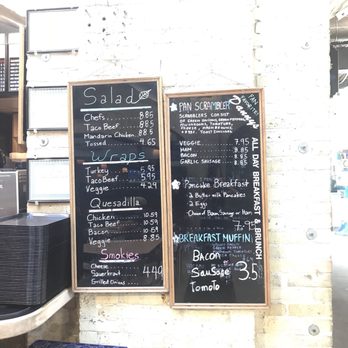 Salad
Chefs 8.85
Taco Beef 8.85
Mandarin Chicken 8.85
Tossed 4.65
Wraps
Turkey 5.95
Taco Beef 5.95
Veggie 4.29
Quesadilla
Chicken 10.59
Taco Beef 10.59
Bacon 10.59
Veggie 8.85
Smokies
Cheese
Sauerkraut 4.40
Grilled Onions
PAN SCRAMBLER
SCRAMBLERS CONSIST
VEGGIE 7.95
HAM 9.85
BACON 9.85
GARLIC SAUSAGE 8.85
Pancake Breakfast
2 Butter Milk Pancakes
2 Eggs
BREAKFAST MUFFIN
BACON
or
SAUSAGE 3.5
TOMATO
ALL DAY BREAKFAST & BRUNCH